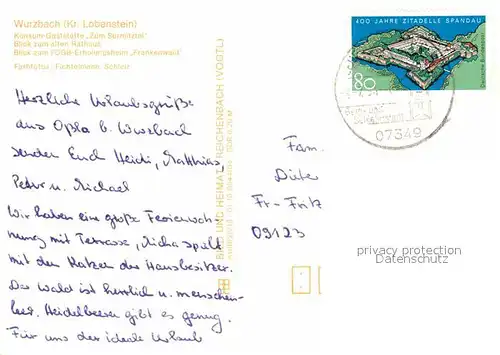 Wurzbach (Kr. Lobenstein)
Konsum-Gaststätte „Zum Sormitztal"
Blick zum alten Rathaus
Blick zum FDGB-Erholungsheim „Frankenwald"
BILD UND HEIMAT REICHENBACH (VOGTL)
400 JAHRE ZITADELLE SPANDAU
80
Deutsche Bundespost
07349
Herzliche Urlaubsgrüße
aus Oßla b. Wurzbach
senden Euch Heidi, Matthias,
Peter u. Michael
Wir haben eine große Ferienwoh-
nung mit Terrasse, Micha spielt
mit den Katzen der Hausbesitzer.
Das Wald ist herrlich u. menschen-
leer. Heidelbeeren gibt es genug.
Für uns der ideale Urlaub
Fam.
Dieter
Fr-Fritz
09123
privacy protection
Datenschutz